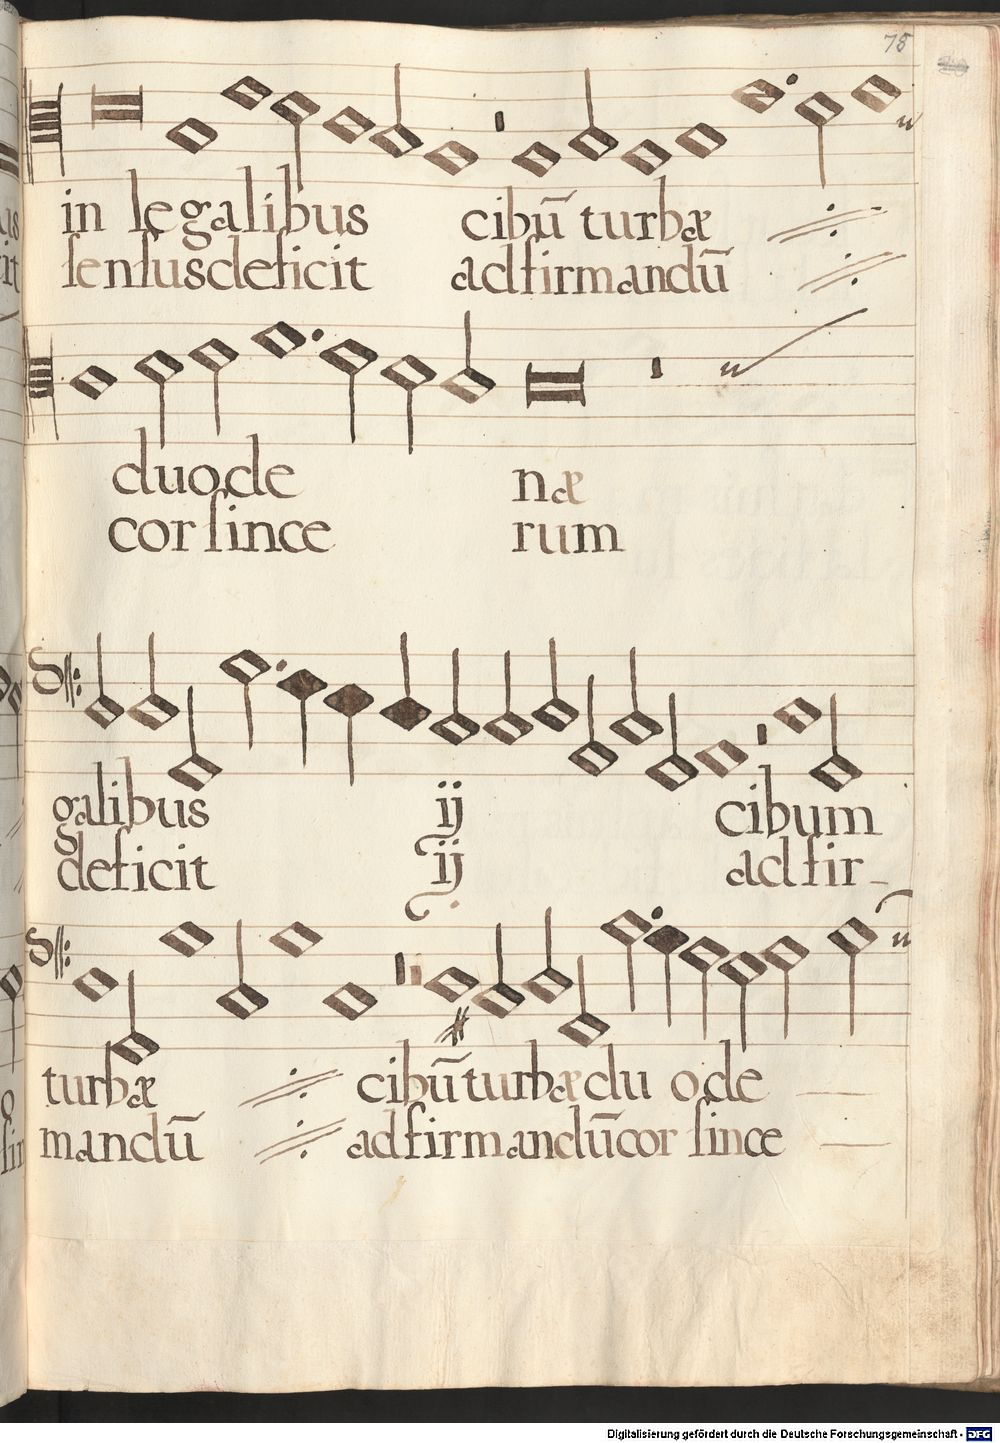 78
in legalibus cibū turbæ
ſenſusdeficit adfirmandū
duode næ
cor ſince rum
galibus ij cibum
deficit ij adfir-
turbæ cibū turbæ du ode
mandū adfirmandū cor ſince
Digitalisierung gefördert durch die Deutsche Forschungsgemeinschaft - DFG